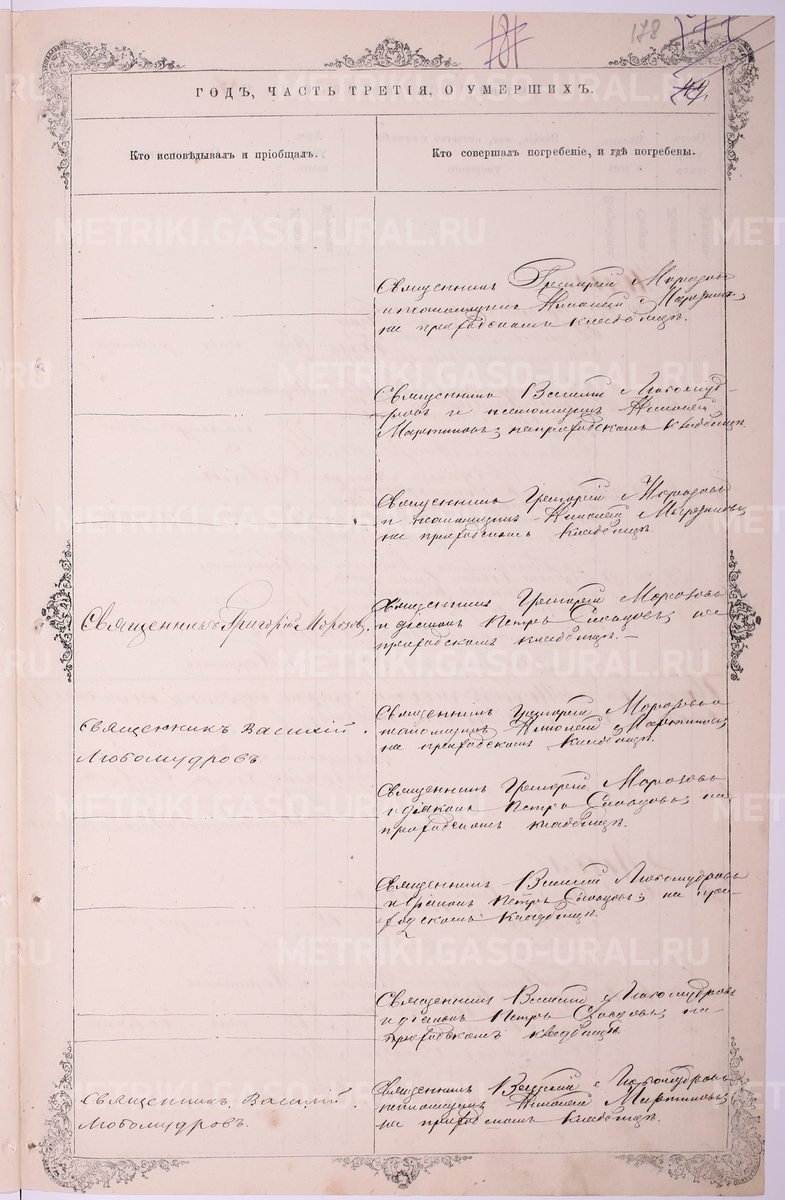 178
ГОДЪ, ЧАСТЬ ТРЕТІЯ, О УМЕРШИХЪ.
Кто исповѣдывалъ и пріобщалъ.
Кто совершалъ погребеніе, и гдѣ погребены.
METRIKI.GASO-URAL.RU
Священникъ Григорій Морозовъ
и псаломщикъ Николай Мартиновъ,
на приходскомъ кладбищѣ.
Священникъ Василій Любомуд-
ровъ и псаломщикъ Николай
Мартиновъ, на приходскомъ кладбищѣ.
Священникъ Григорій Морозовъ
и псаломщикъ Николай Мартиновъ,
на приходскомъ кладбищѣ.
Священникъ Григорій Морозовъ.
Священникъ Григорій Морозовъ
и діаконъ Петръ на
приходскомъ кладбищѣ.
Священникъ Василій
Любомудровъ.
Священникъ Григорій Морозовъ и
псаломщикъ Николай Мартиновъ,
на приходскомъ кладбищѣ.
Священникъ Григорій Морозовъ
и діаконъ Петръ на
приходскомъ кладбищѣ.
Священникъ Василій Любомудровъ
и діаконъ Петръ на при-
ходскомъ кладбищѣ.
Священникъ Василій Любомудровъ
и діаконъ Петръ на
приходскомъ кладбищѣ.
Священникъ Василій
Любомудровъ.
Священникъ Василій Любомудровъ
псаломщикъ Николай Мартиновъ,
на приходскомъ кладбищѣ.